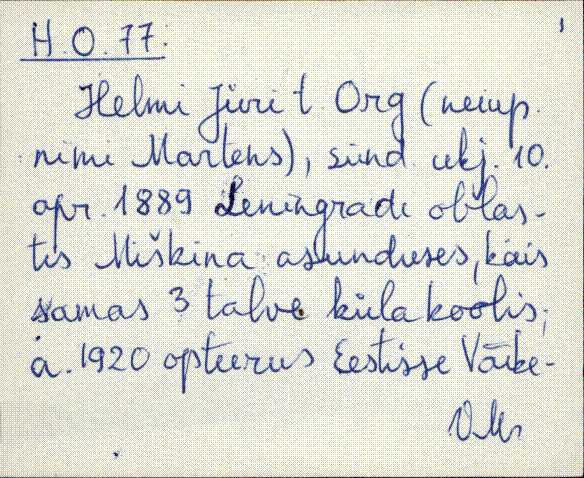 H.O.77.
Helmi Jüri t. Org (neiup.
nimi Martens), sünd. ukj. 10.
apr. 1889 Leningradi oblas-
tis Miškina asunduses, käis
samas 3 talve külakoolis;
a. 1920 opteerus Eestisse Väike-